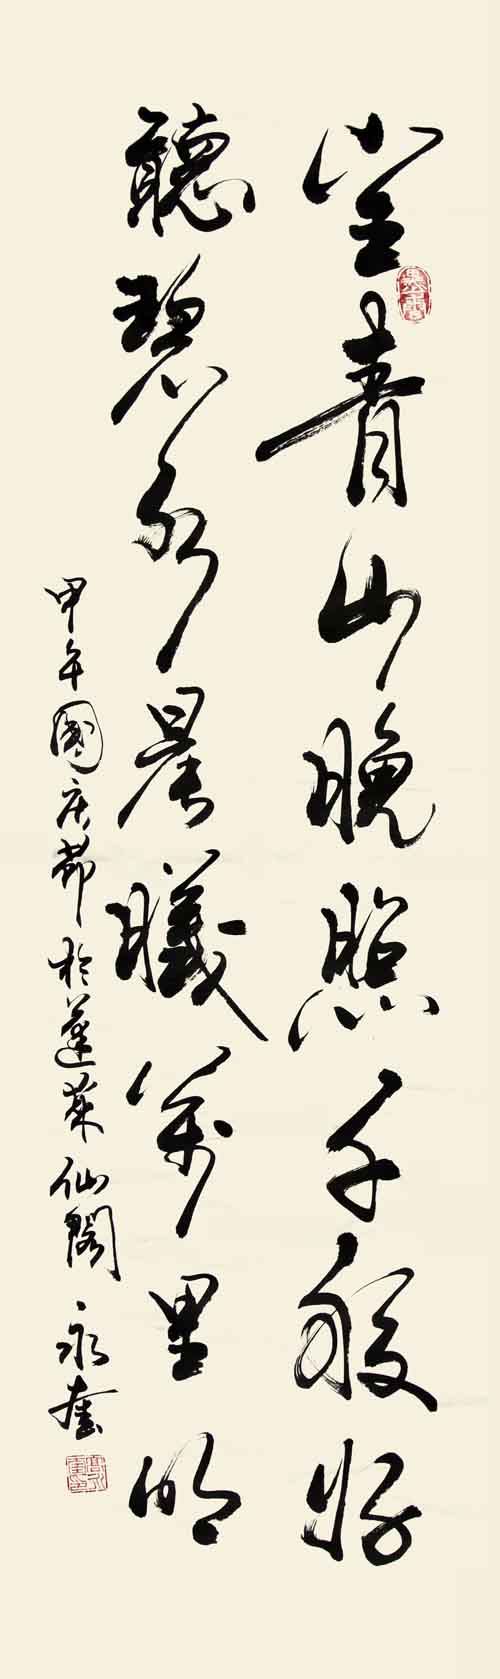 坐青山晚照千般好
聽碧水晨曦萬里明
甲午國庆節於蓬萊仙閣 永奎